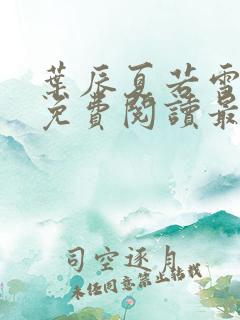 葉辰夏若雪
免費閱讀最
司空逐月
未经同意禁止转载